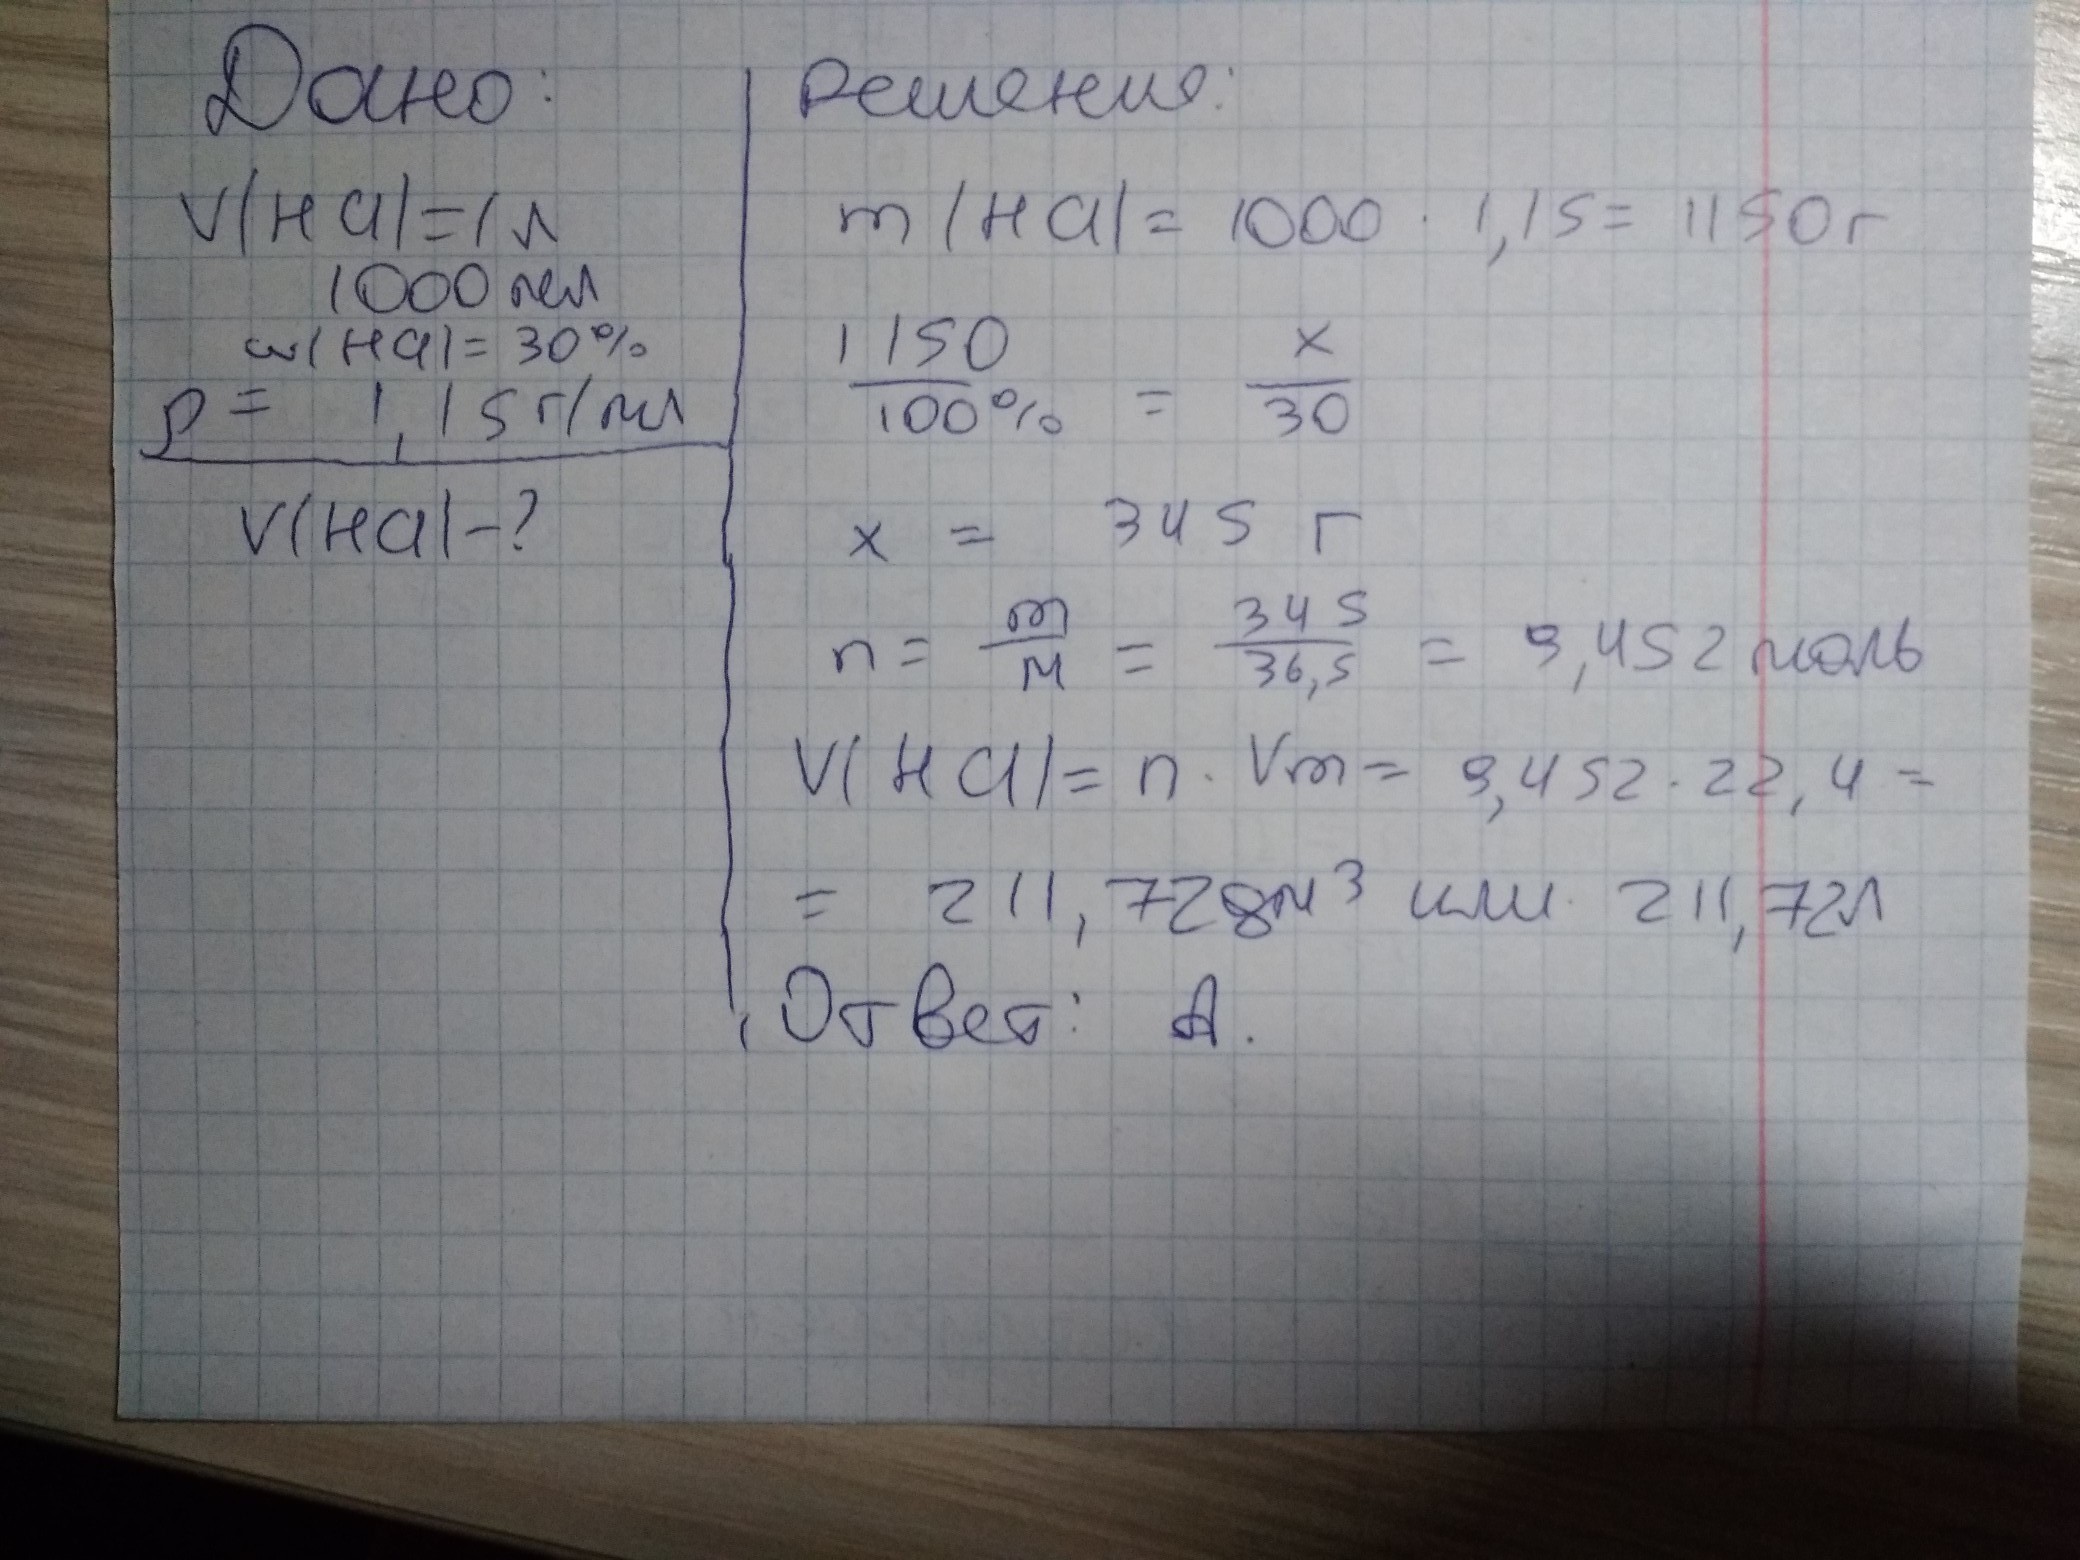 Дано:
V(HCl)=1л
1000 мл
ω(HCl)=30%
ρ= 1,15г/мл
V(HCl)-?
Решение:
m(HCl)= 1000 · 1,15= 1150г
1150/100% = x/30
x = 345 г
n= m/M = 345/36,5 = 9,452 моль
V(HCl)= n · Vm= 9,452 · 22,4 =
= 211,72дм³ или 211,72л
Ответ: А.